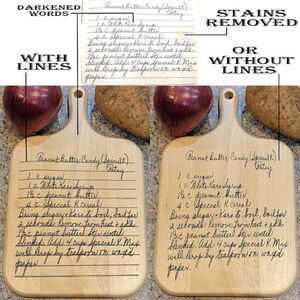 DARKENED
WORDS
STAINS
REMOVED
WITH
LINES
OR
WITHOUT
LINES
Peanut Butter Candy (Special K)
Patsy
1 c sugar
1 c White Karo syrup
1½ c peanut butter
4 c Special K cereal
Bring sugar & Karo to boil, boil for
2 seconds remove from heat & add
1½ c peanut butter stir until
blended. Add 4 cups Special K. Mix
well. Drop by teaspoon on wax'd
paper.
Peanut Butter Candy (Special K)
1 c sugar
1 c White Karo syrup
1½ c peanut butter
4 c Special K cereal
Bring sugar & Karo to boil, boil for
2 seconds remove from heat & add
1½ c peanut butter stir until
blended. Add 4 cups Special K. Mix
well. Drop by teaspoon on wax'd
paper.
Peanut Butter Candy (Special K)
1 c sugar
1 c White Karo syrup
1½ c peanut butter
4 c Special K cereal
Bring sugar & Karo to boil, boil for
2 seconds remove from heat & add
1½ c peanut butter stir until
blended. Add 4 cups Special K. Mix
well. Drop by teaspoon on wax'd
paper.